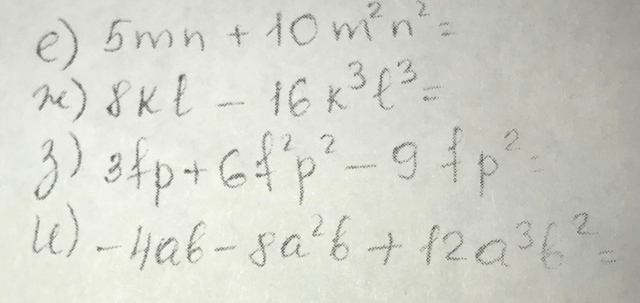 е) 5mn + 10m²n² =
ж) 8kl - 16k³l³ =
з) 3fp + 6f²p² - 9fp² =
и) -4ab - 8a²b + 12a³b² =